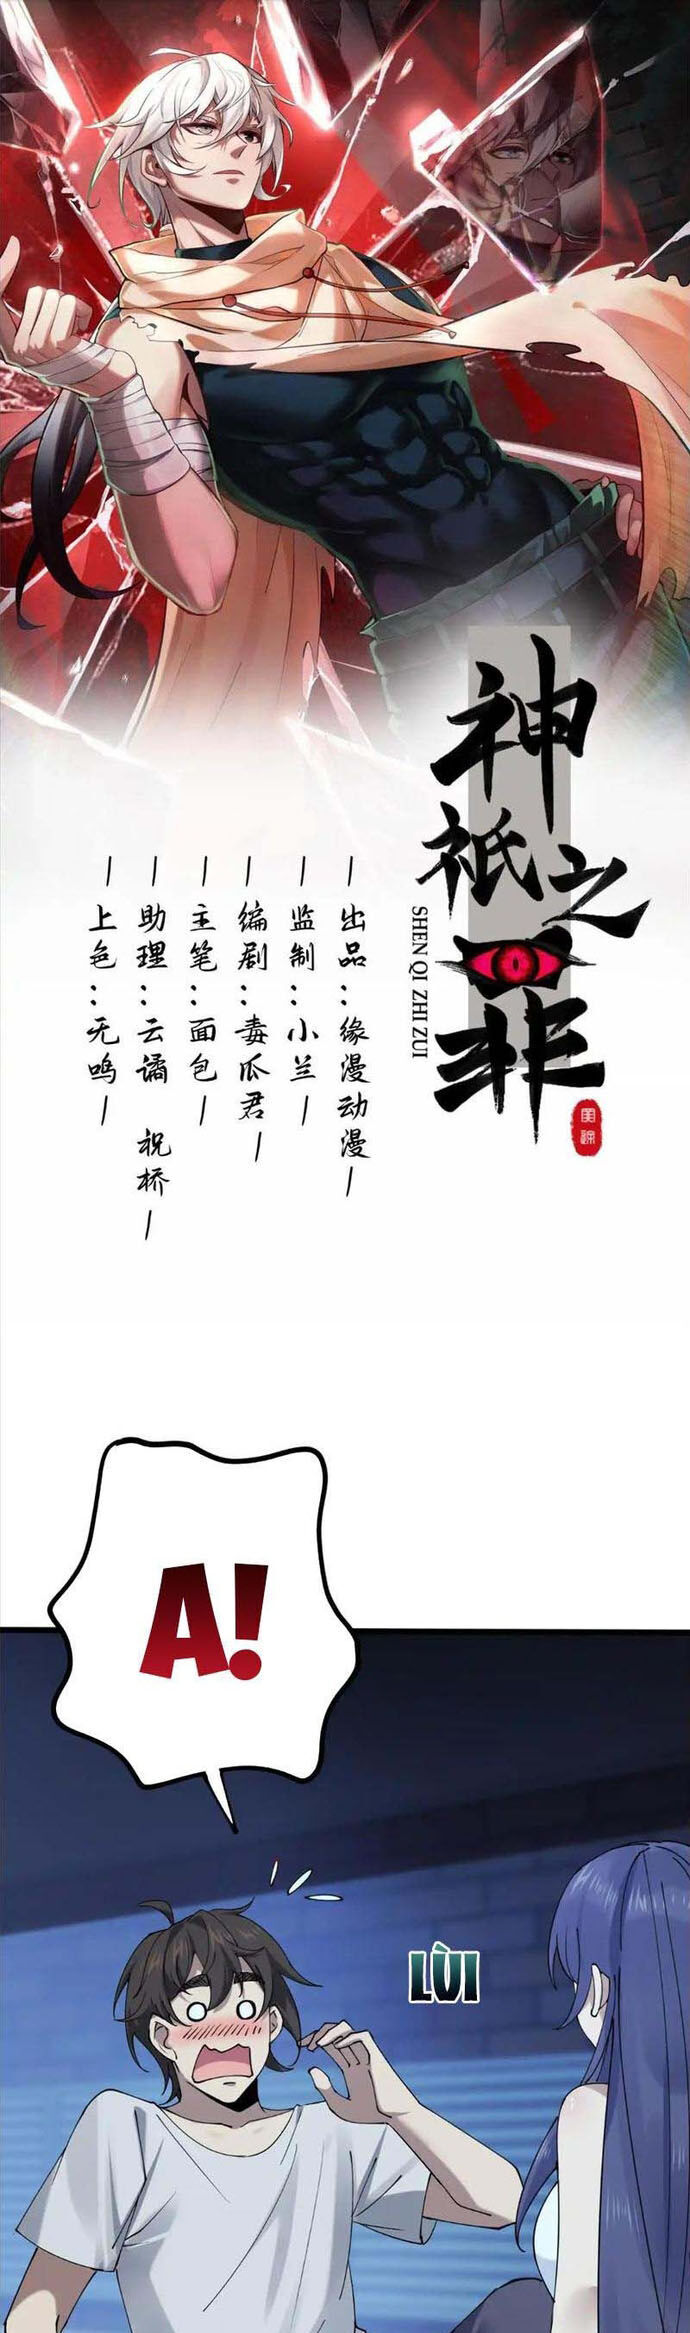 神祇之罪
SHEN QI ZHI ZUI
出品：缘漫动漫
监制：小兰
编剧：毒瓜君
主笔：面包
助理：云谲 祝桥
上色：无鸣
A!
LÙI